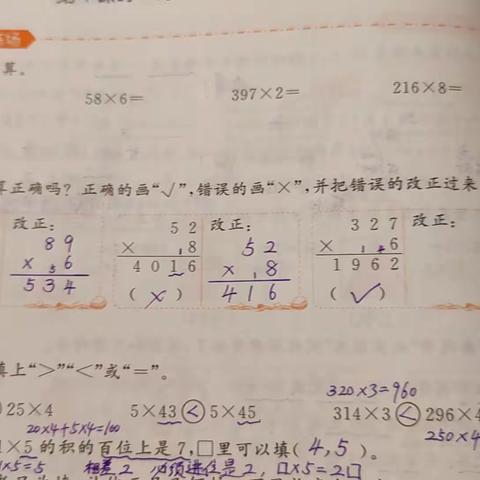 算。
58×6=
397×2=
216×8=
算正确吗？正确的画“√”，错误的画“×”，并把错误的改正过来
改正：
89
× 5 6
534
52
× 1 8
4016
( × )
改正：
52
× 1 8
416
327
× 1 4 6
1962
( √ )
改正：
填上“>”“<”或“=”。
320×3=960
25×4
5×43 < 5×45
314×3 < 296×4
20×4+5×4=100
250×4
1×5的积的百位上是7，□里可以填( 4,5 )。
×5=5 相差2 必须进位是2，□×5=2□